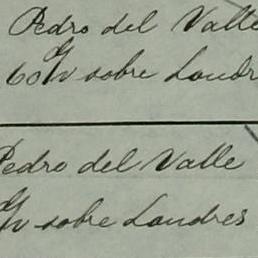 Pedro del Valle
60 d/v sobre Londr
Pedro del Valle
d/v sobre Londres